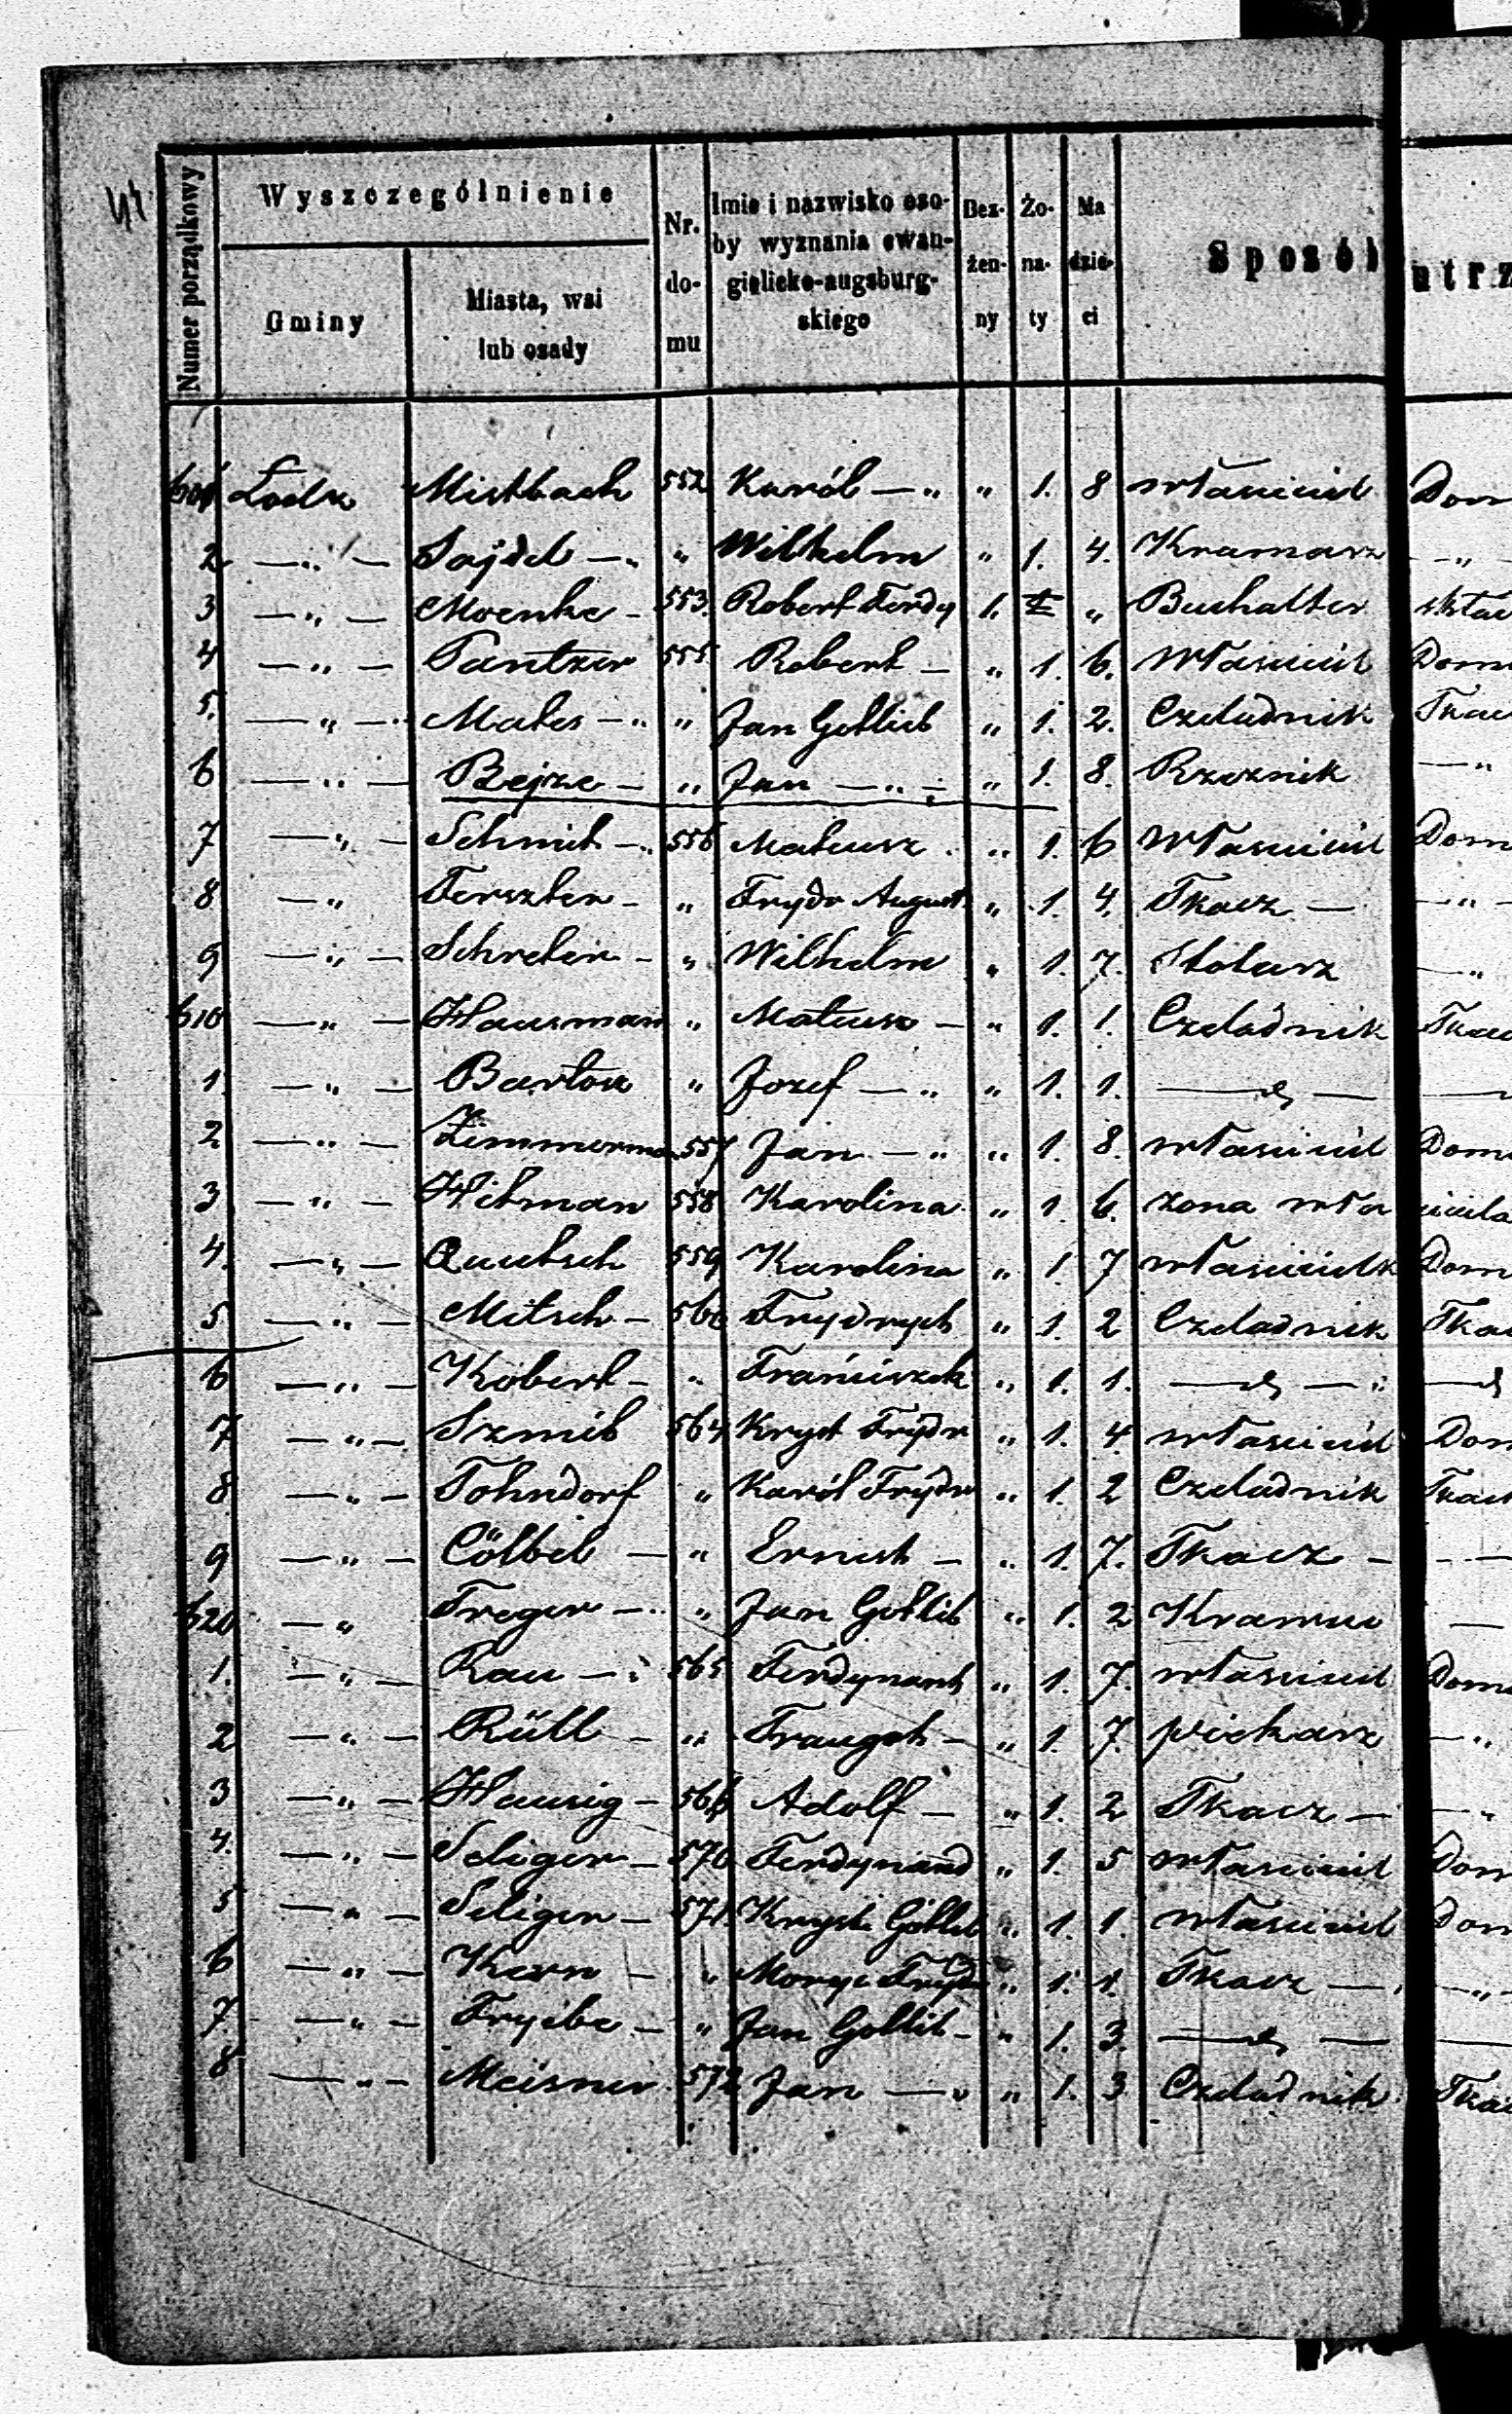 44.
Numer porządkowy | Wyszczególnienie | Nr. domu | Imie i nazwisko osoby wyznania ewangielicko-augsburgskiego | Bezżenny | Żonaty | Ma dzieci | Sposób utrz
Gminy | Miasta, wsi lub osady
601 Lodz Mistbach 552 Karól — „ „ 1. 8 własciciel Dom
2 — „ — Sajdel — „ „ Wilhelm „ 1. 4. Kramarz — „
3 — „ — Moenke — 553. Robert Ferdy 1. „ Buchalter
4 — „ — Pantzer 555 Robert — „ 1. 6. Własciciel Dom
5. — „ — Mates — „ „ Jan Gotlieb „ 1. 2. Czeladnik Tkac
6 — „ — Bejze — „ Jan — „ — „ 1. 8. Rzeznik — „
7 — „ — Schmit — 556 Mateusz „ 1. 6 Własciciel Dom
8 — „ Ferszter — „ Frydr August „ 1. 4. Tkacz — — „ —
9 — „ — Schreter — „ Wilhelm „ 1. 7. Stolarz — „
610 — „ — Hausman „ Mateusz — „ 1. 1. Czeladnik Tkac
1. — „ — Bartosz „ Jozef — „ „ 1. 1. — d —
2 — „ — Zimmerma 557 Jan — „ „ 1. 8. własciciel Dom
3 — „ — Hitman 558 Karolina „ 1. 6. zona wła sciciela
4. — „ — Quutsch 559 Karolina „ 1. 7 włascicielk Dom
5 — „ — Mitsch — 560 Frydrych „ 1. 2 Czeladnik Tka
6 — „ — Kobert — „ Franciszek „ 1. 1. — d — „ — d
7 — „ — Szmit 564 Kryst Frydr „ 1. 4 własciciel Dom
8 — „ — Tohndorf „ Karól Frydr „ 1. 2 Czeladnik Tkac
9 — „ — Cölbel — „ Ernest — „ 1. 7. Tkacz — —
620 — „ Treger — „ „ Jan Gotlib „ 1. 2 —
1. — „ — Rau — „ 565 Ferdynant „ 1. 7. własciciel Dom
2 — „ — Rüll — „ Traugot — „ 1. 7. piekarz — „
3 — „ — Hausig — 566 Adolf — „ 1. 2 Tkacz — — „
4. — „ — Seliger — 570 Ferdynand „ 1. 5 własciciel Dom
5 — „ — Seliger — 571. Kryst Gotlib „ 1. 1. własciciel Dom
6 — „ — Kern — „ Moryc Frydr „ 1. 1. Tkacz — — „
7. — „ — Frycibe — „ Jan Gotlib — „ 1. 3. — d — —
8 — „ — Meisner 572 Jan — „ „ 1. 3 Czeladnik Tkac